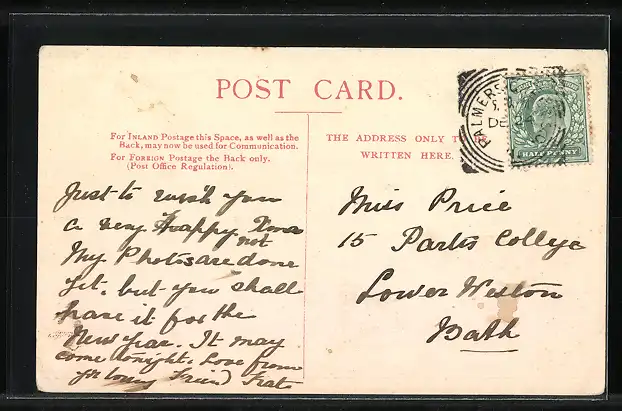 POST CARD.
For INLAND Postage this Space, as well as the
Back, may now be used for Communication.
For FOREIGN Postage the Back only.
(Post Office Regulation).
THE ADDRESS ONLY TO BE
WRITTEN HERE.
PALMERS
DE 24
HALF PENNY
Just to wish you
a very Happy Xmas
My Photos are not done
yet, but you shall
have it for the
New year. It may
come tonight. Love from
yr loving Friend
Miss Price
15 Parks College
Lower Weston
Bath